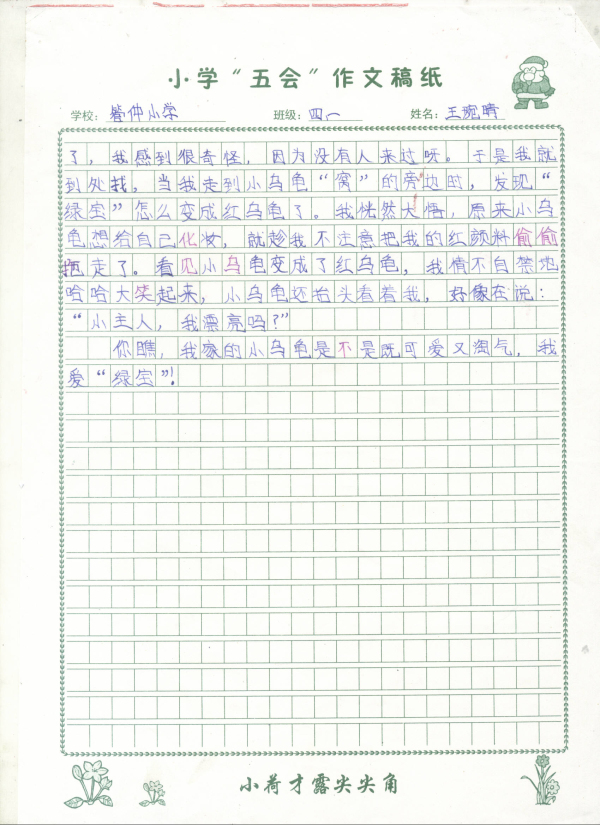 小学“五会”作文稿纸
学校：管仲小学 班级：四、一 姓名：王婉晴
了，我感到很奇怪，因为没有人来过呀。于是我就
到处找，当我走到小乌龟“窝”的旁边时，发现“
绿宝”怎么变成红乌龟了。我恍然大悟，原来小乌
龟想给自己化妆，就趁我不注意把我的红颜料偷偷
拖走了。看见小乌龟变成了红乌龟，我情不自禁地
哈哈大笑起来，小乌龟还抬头看着我，好像在说：
“小主人，我漂亮吗？”
你瞧，我家的小乌龟是不是既可爱又淘气，我
爱“绿宝”！
小荷才露尖尖角